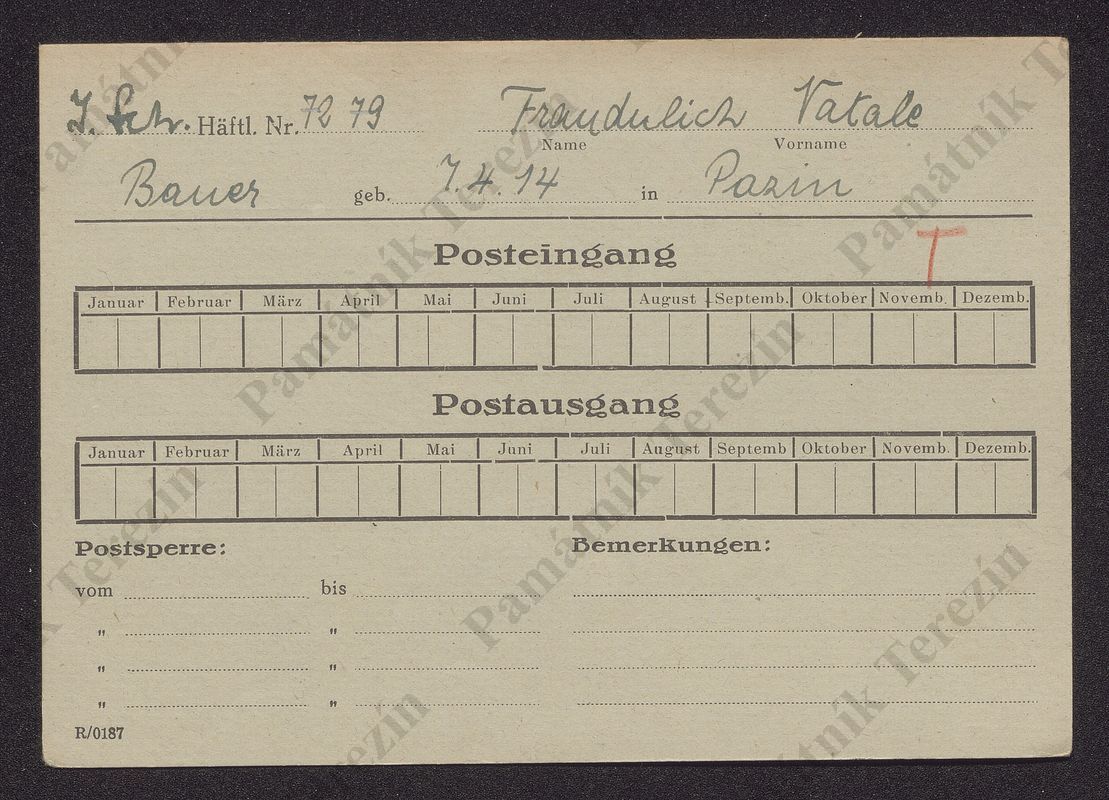 J. Sch. Häftl. Nr. 7279 Fraudulich Natale
Name Vorname
Bauer geb. 7.4.14 in Pazin
T
Posteingang
Januar Februar März April Mai Juni Juli August Septemb. Oktober Novemb. Dezemb.
Postausgang
Januar Februar März April Mai Juni Juli August Septemb Oktober Novemb. Dezemb.
Postsperre: Bemerkungen:
vom bis
" "
" "
" "
R/0187
Památník Terezín